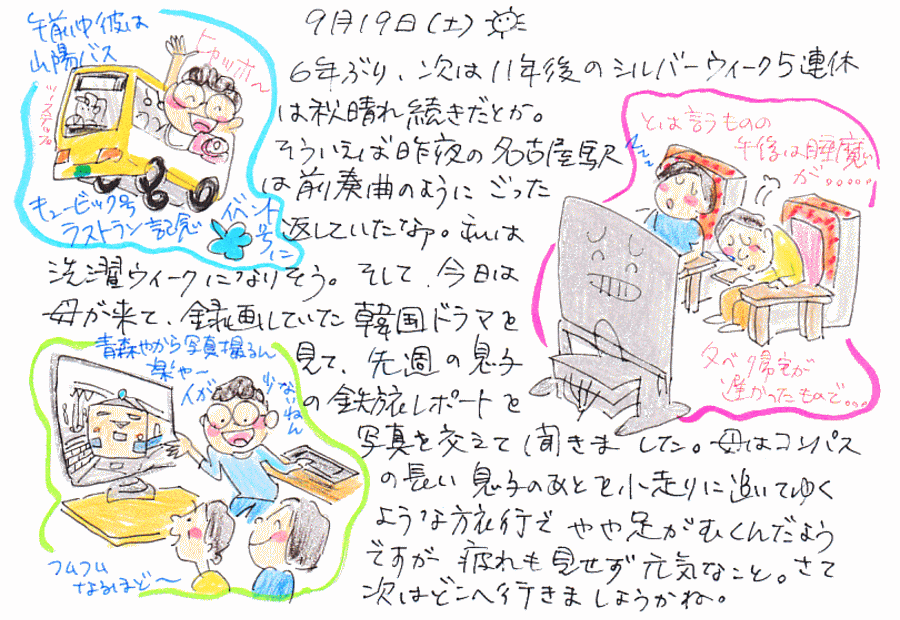 9月19日(土)
6年ぶり、次は11年後のシルバーウィーク5連休
は秋晴れ続きだとか。
そういえば昨夜の名古屋駅
は前奏曲のようにごった
返していたなァ。私は
洗濯ウィークになりそう。そして、今日は
母が来て、録画していた韓国ドラマを
見て、先週の息子
の鉄旅レポートを
写真を交えて聞きました。母はコンパス
の長い息子のあとを小走りに追いてゆく
ような旅行でやや足がむくんだよう
ですが疲れも見せず元気なこと。さて
次はどこへ行きましょうかね。
午前中彼は
山陽バス
ヒャッホ〜
キュービック号
ラストラン記念
イベント
号に
とは言うものの
午後は睡魔
が……
夕べ帰宅が
遅かったもので…
青森やから写真撮るん
楽や〜
人が
少ないねん
フムフム
なるほど〜